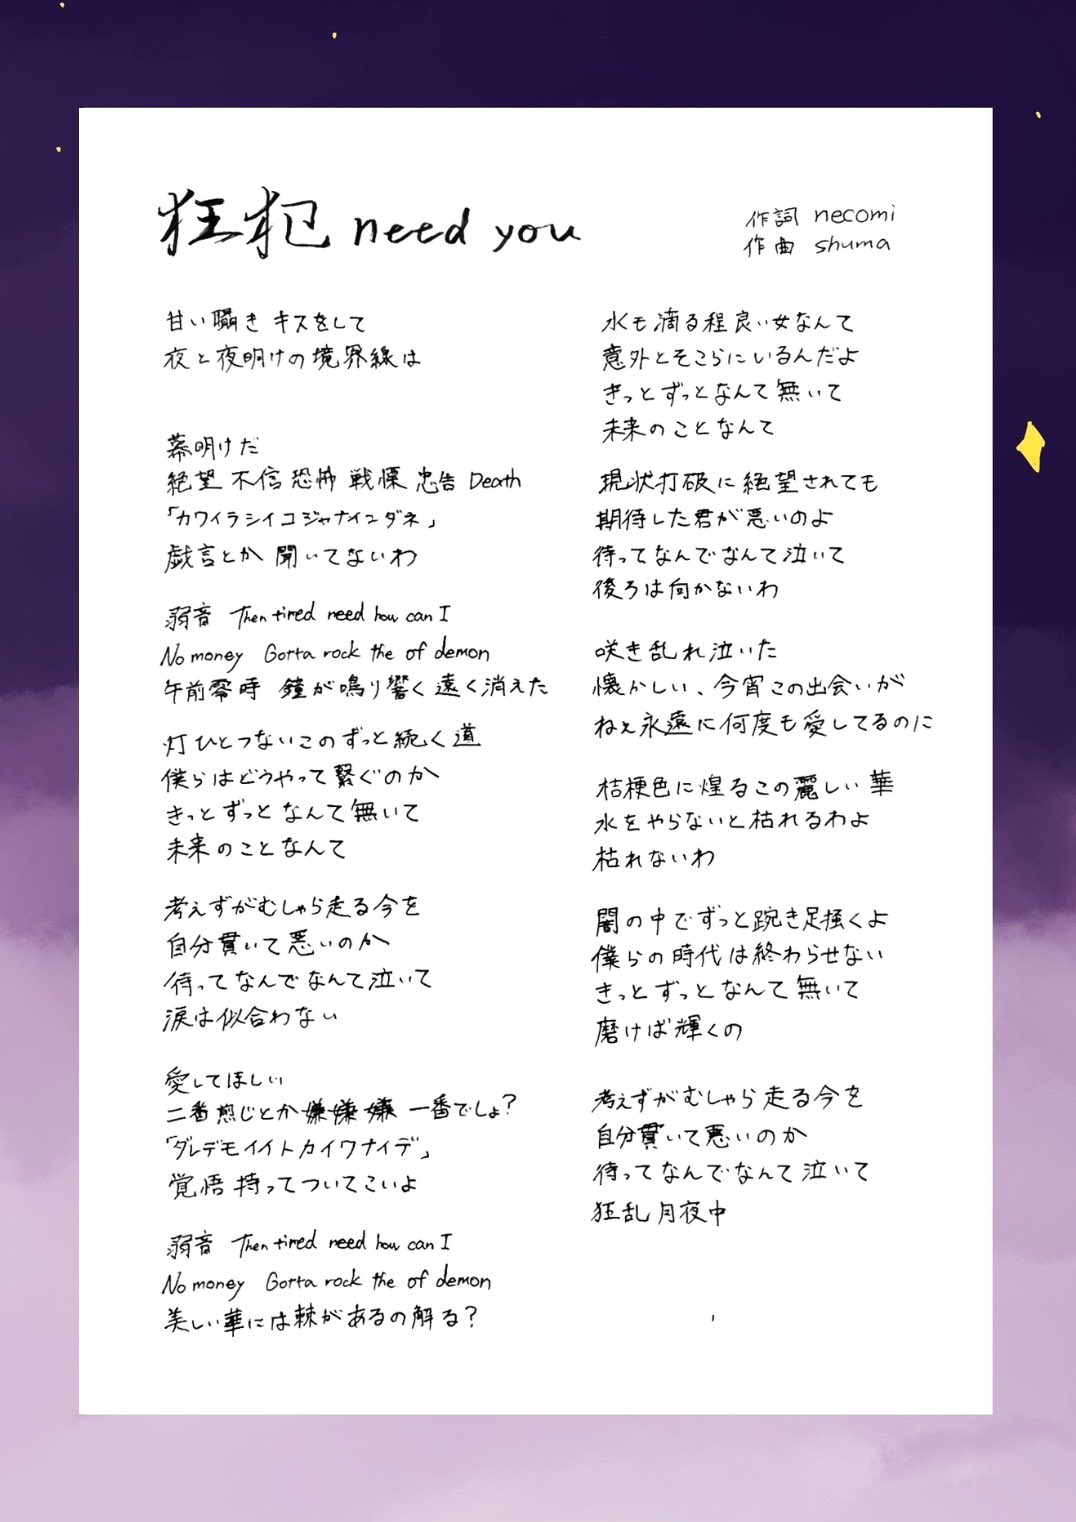 狂犯 need you
作詞 necomi
作曲 shuma
甘い囁き キスをして
夜と夜明けの境界線は
幕明けだ
絶望 不信 恐怖 戦慄 忠告 Death
「カワイラシイコジャナインダネ」
戯言とか 聞いてないわ
弱音 Then tired need how can I
No money Gotta rock the of demon
午前零時 鐘が鳴り響く遠く消えた
灯ひとつないこのずっと続く道
僕らはどうやって繋ぐのか
きっとずっとなんて無いて
未来のことなんて
考えずがむしゃら走る今を
自分貫いて悪いのか
待ってなんでなんて泣いて
涙は似合わない
愛してほしい
二番煎じとか嫌嫌嫌 一番でしょ?
「ダレデモイイトカイワナイデ」
覚悟持ってついてこいよ
弱音 Then tired need how can I
No money Gotta rock the of demon
美しい華には棘があるの解る?
水も滴る程良い女なんて
意外とそこらにいるんだよ
きっとずっとなんて無いて
未来のことなんて
現状打破に絶望されても
期待した君が悪いのよ
待ってなんでなんて泣いて
後ろは向かないわ
咲き乱れ泣いた
懐かしい、今宵この出会いが
ねぇ永遠に何度も愛してるのに
桔梗色に煌るこの麗しい華
水をやらないと枯れるわよ
枯れないわ
闇の中でずっと踠き足掻くよ
僕らの時代は終わらせない
きっとずっとなんて無いて
磨けば輝くの
考えずがむしゃら走る今を
自分貫いて悪いのか
待ってなんでなんて泣いて
狂乱月夜中